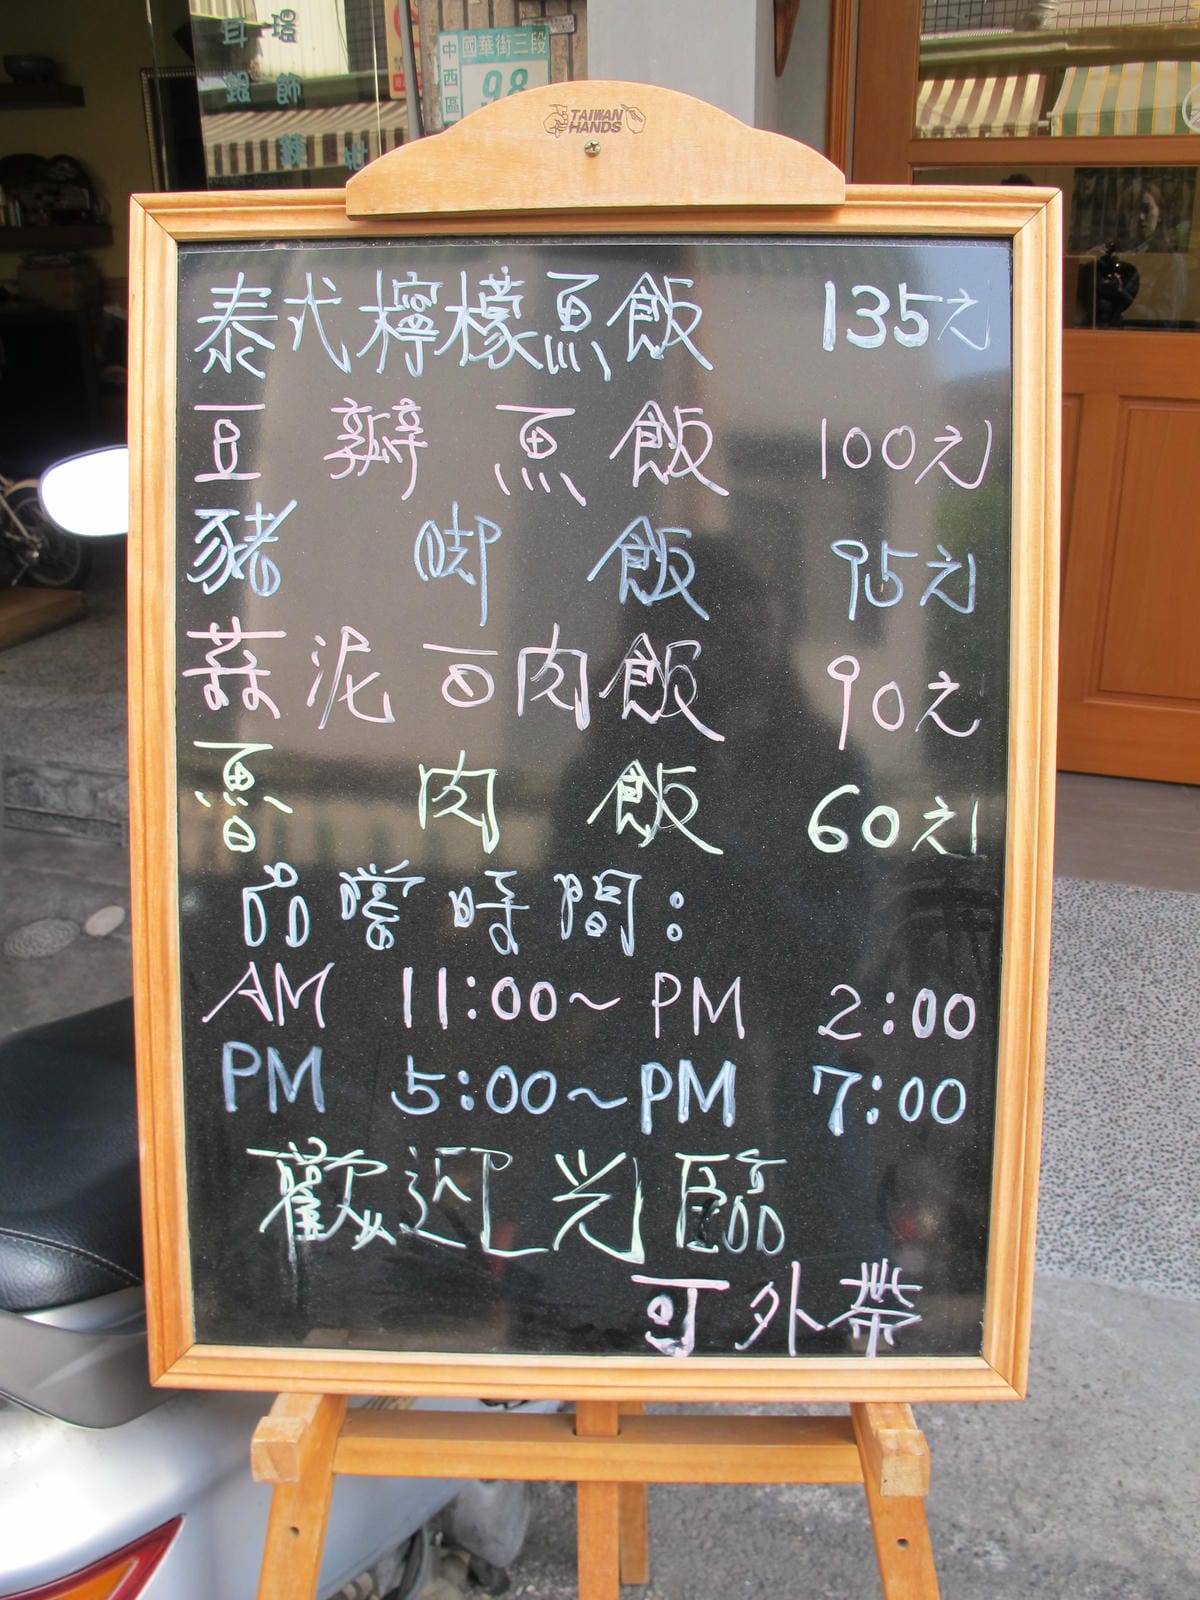 耳環
銀飾
中西區
國華街三段
98
TAIWAN
HANDS
泰式檸檬魚飯 135元
豆瓣魚飯 100元
豬腳飯 95元
蒜泥白肉飯 90元
魯肉飯 60元
品嚐時間：
AM 11:00～PM 2:00
PM 5:00～PM 7:00
歡迎光臨
可外帶